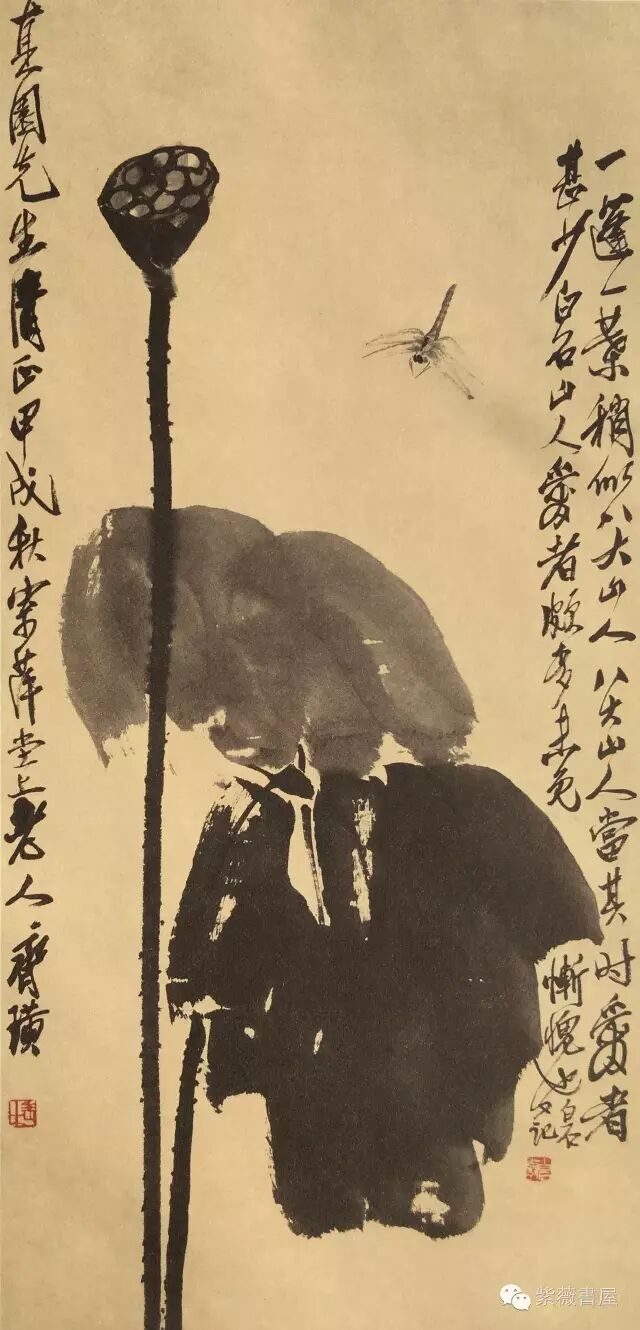 一蓬一葉稍似八大山人八大山人當其时愛者
甚少白石山人愛者頗多未免
慚愧也白石
又記
園先生清正甲戌秋寄萍堂上老人齊璜
紫薇書屋